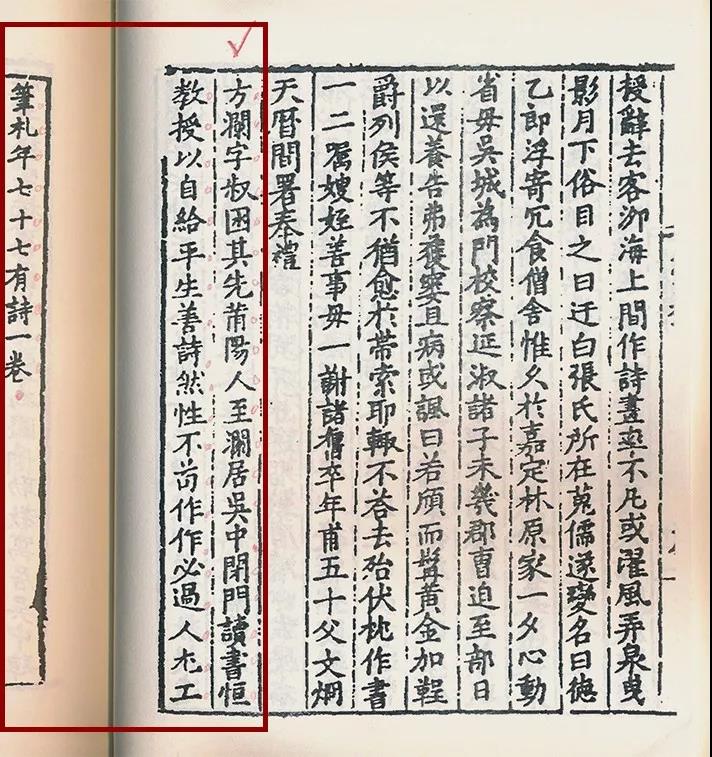 授辭去客泖海上間作詩畫亟不凡或濯風弄泉曵
影月下俗目之曰迂白張氏所在蒐儒遂變名曰德
乙郎浮寄冗食僧舍惟久於嘉定林原家一夕心動
省毋吳城為門校察逛淑諸子未幾郡曹迫至部日
以還養告弗獲窭且病或諷曰若頎而髯黃金加鞓
爵列侯等不猶愈於帶索耶輙不荅去殆伏枕作書
一二嘱嫂姪善事毋一謝諸舊卒年甫五十父文烱
天曆間署奉禮
方瀾字叔困其先莆陽人至瀾居吳中閉門讀書恒
教授以自給平生善詩然性不茍作作必過人尤工
筆札年七十七有詩一卷